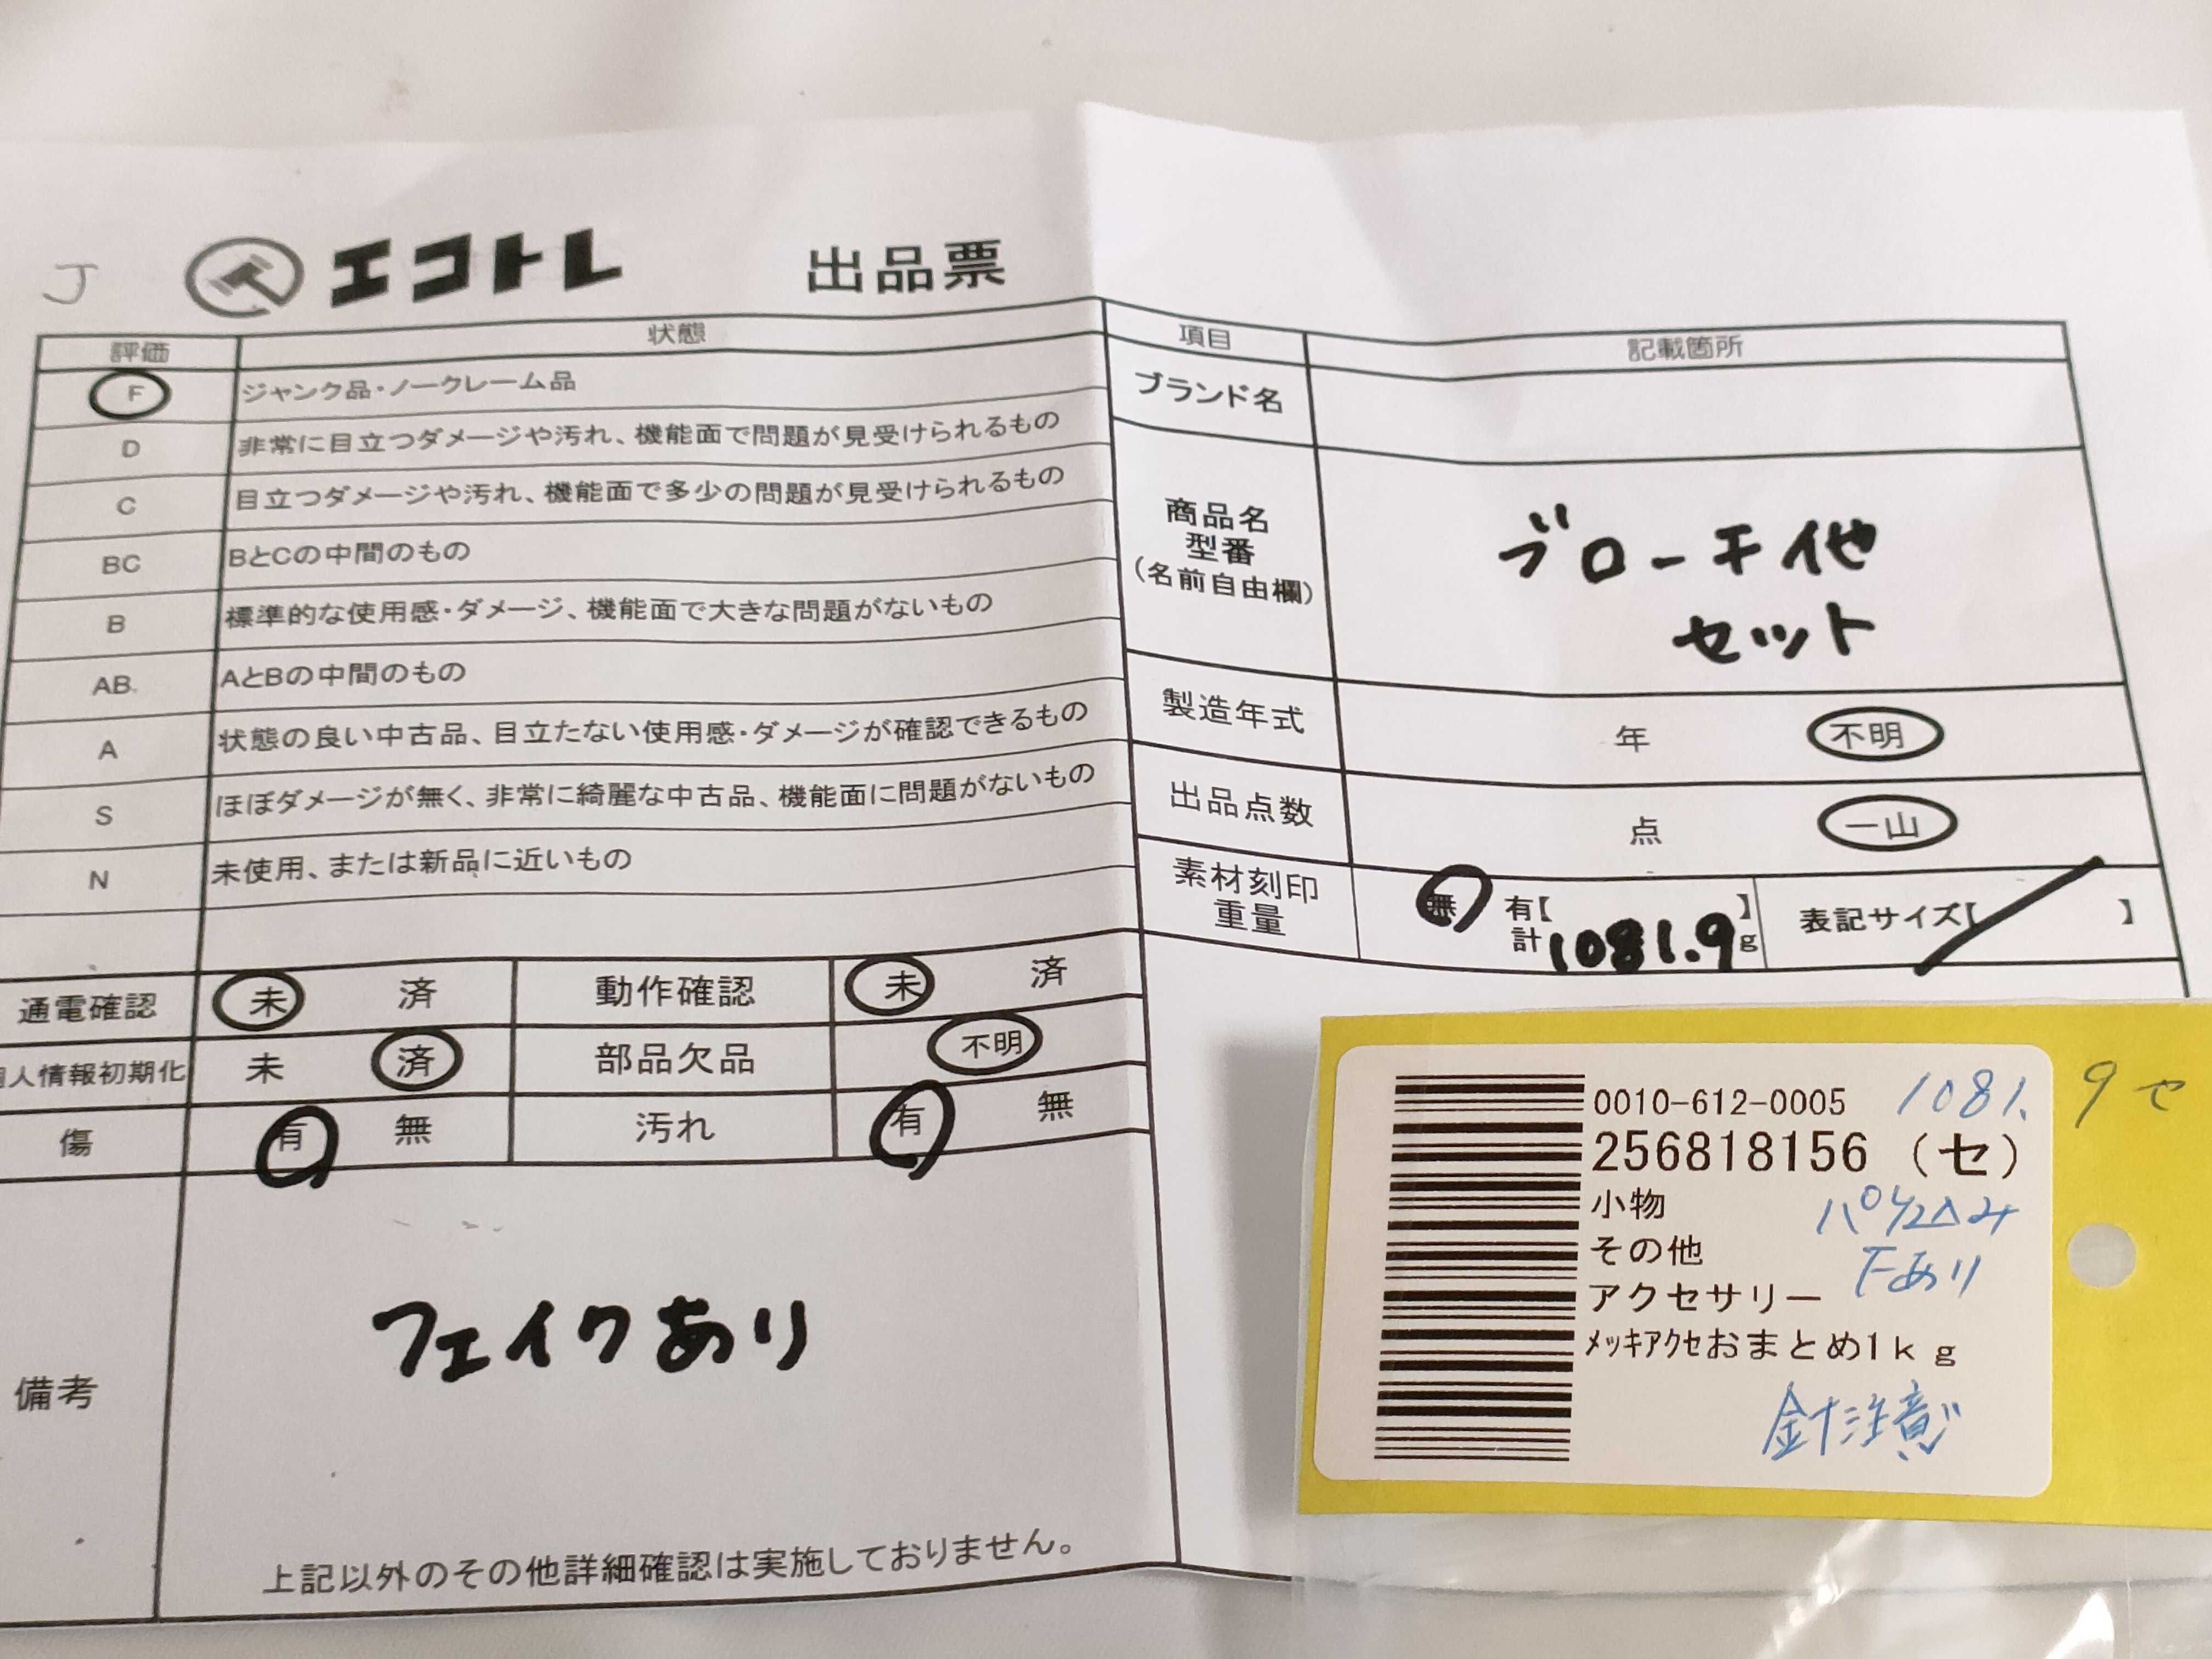 J
エコトレ 出品票
評価 状態
F ジャンク品・ノークレーム品
D 非常に目立つダメージや汚れ、機能面で問題が見受けられるもの
C 目立つダメージや汚れ、機能面で多少の問題が見受けられるもの
BC BとCの中間のもの
B 標準的な使用感・ダメージ、機能面で大きな問題がないもの
AB AとBの中間のもの
A 状態の良い中古品、目立たない使用感・ダメージが確認できるもの
S ほぼダメージが無く、非常に綺麗な中古品、機能面に問題がないもの
N 未使用、または新品に近いもの
通電確認 未 済 動作確認 未 済
人情報初期化 未 済 部品欠品 不明
傷 有 無 汚れ 有 無
備考
フェイクあり
上記以外のその他詳細確認は実施しておりません。
項目 記載箇所
ブランド名
商品名
型番
(名前自由欄)
ブローチ他
セット
製造年式 年 不明
出品点数 点 一山
素材刻印
重量
無 有【 】
計 1081.9 g
表記サイズ【 】
0010-612-0005 1081.9セ
256818156 (セ)
小物
その他
アクセサリー Fあり
ﾒｯｷｱｸｾおまとめ1kg
針注意